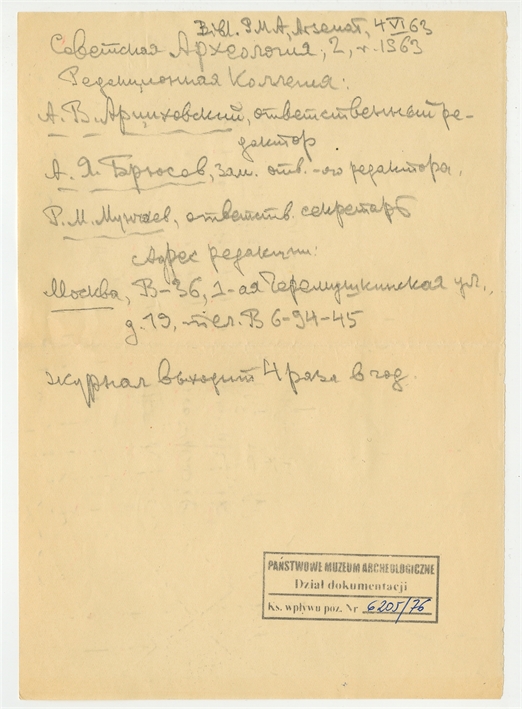 Bibl. P.M.A, Arsenał, 4 VI 63
Советская Археология, 2, г. 1963
Редакционная Коллегия:
А. В. Арциховский, ответственный ре-
дактор
А. Я. Брюсов, зам. отв.-ого редактора,
Р. М. Мунчаев, ответств. секретарь
Адрес редакции:
Москва, В-36, 1-ая Черемушкинская ул.,
д. 19, тел. В 6-94-45
журнал выходит 4 раза в год.
PAŃSTWOWE MUZEUM ARCHEOLOGICZNE
Dział dokumentacji
Ks. wpływu poz. Nr 6205/76